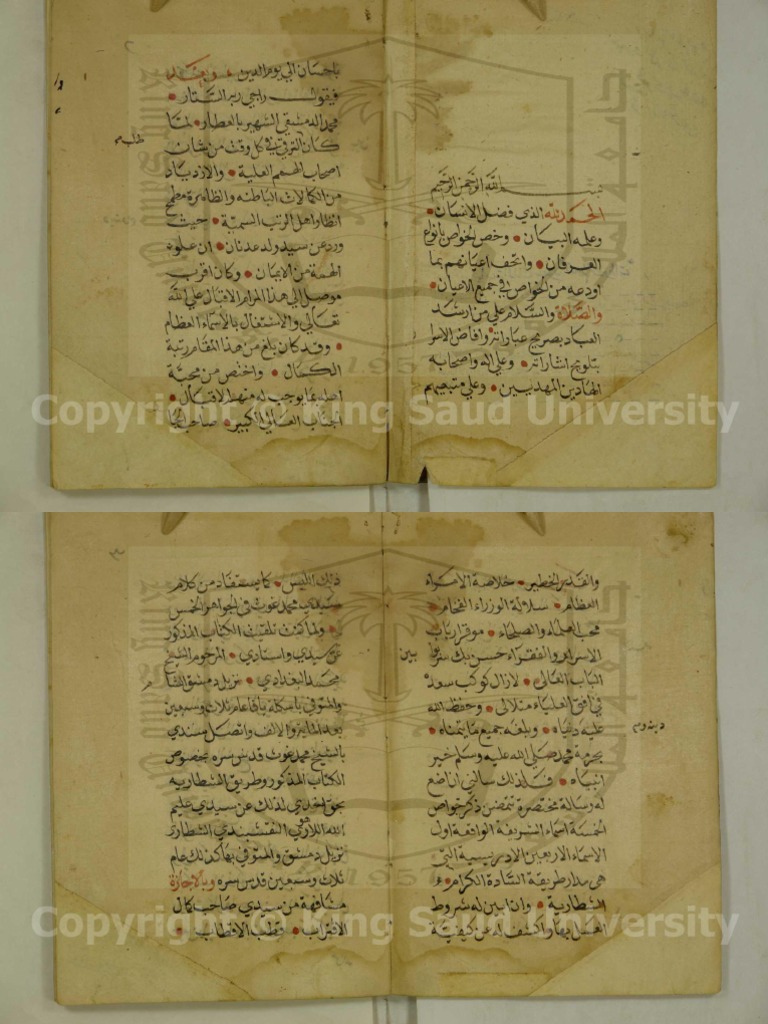 بسم الله الرحمن الرحيم
الحمد لله الذي فضل الانسان
وعلمه البيان وخص الخواص بانواع
العرفان واتحف اعيانهم بما
اودعه من الخواص في جميع الاحيان
والصلاة والسلام على من ارشد
العباد بصريح عباراته وافاض الاسرار
بتلويح اشاراته وعلى اله واصحابه
الهادين المهديين وعلى متبعيهم
باحسان الى يوم الدين وبعد
فيقول راجي ربه الستار
محمد الدمشقي الشهير بالعطار لما
كان الترقي في كل وقت من شان
اصحاب الهمم العلية والازدياد
من الكمالات الباطنه والظاهرة مطمح
انظار اهل الرتب السميّة حيث
ورد عن سيد ولد عدنان ان علو
الهمة من الايمان وكان اقرب
موصل الى هذا المرام الاقبال على الله
تعالى والاشتغال بالاسماء العظام
وقد كان بلغ من هذا المقام رتبة
الكمال واختص من محبة
اهله بما يوجب له الاقبال
الجناب العالي الكبير صاحب
والقدر الخطير خلاصة الامراء
العظام سلالة الوزراء الفخام
محب العلماء والصلحاء موقر ارباب
الاسرار والفقراء حسن بك
الباب العالي لازال كوكب سعده
في افق العلياء متلالي وحفظ الله
عليه دنياه وبلغه جميع ما يتمناه
بحرمة محمد صلى الله عليه وسلم خير
انبياه فلذلك سالني ان اضع
له رسالة مختصرة تتضمن ذكر خواص
الخمسة اسماء الشريفة الواقعة اول
الاسماء الاربعين الادريسية التي
هي مدار طريقة السادة الكرام
الشطارية وان ابين له شروط
العمل بها واكشف له عن كيفية
ذلك كما يستفاد من كلام
سيدي محمد غوث في الجواهر الخمس
ولما كنت تلقيت الكتاب المذكور
عن سيدي واستاذي المرحوم الشيخ
محمد البغدادي نزيل دمشق الشام
والمتوفى باسكلة يافا عام ثلاث وسبعين
بعد الماية والالف واتصل سندي
بالشيخ محمد غوث قدس سره بخصوص
الكتاب المذكور وطريق الشطاريه
بحق اخذي لذلك عن سيدي عليم
الله اللاهوري النقشبندي الشطاري
نزيل دمشق والمتوفى بها كذلك عام
ثلاث وسبعين قدس سره وبالاجازة
مشافهة من سيدي صاحب كمال
الاقتراب قطب الاقطاب
Copyright © King Saud University
Copyright © King Saud University